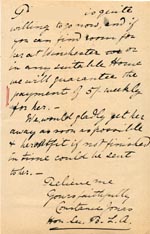 is quite
willing to go now, and if
you can find room for
her at Winchester or
in any suitable Home
we will guarantee the
payment of 5/- weekly
for her. —
We would gladly get her
away as soon as possible
& her if not finished
in time could be sent
to her. —
Believe me
Yours faithfully
Constance
Hon. Sec.